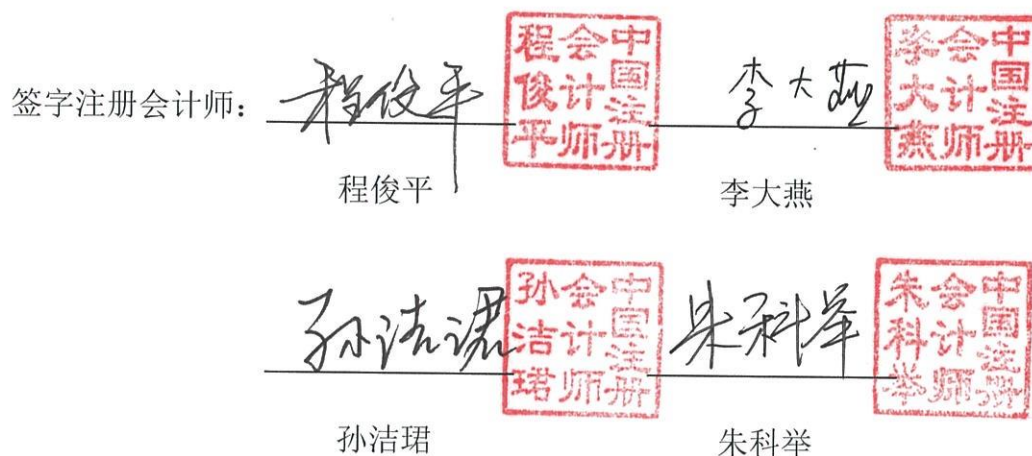 签字注册会计师： 程俊平 中国注册会计师程俊平 李大燕 中国注册会计师李大燕
程俊平 李大燕
孙洁珺 中国注册会计师孙洁珺 朱科举 中国注册会计师朱科举
孙洁珺 朱科举